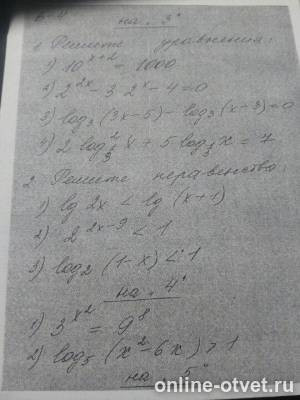 на „3"
1. Решите уравнения:
1) 10^(x+2) = 1000
2) 2^(2x) - 3·2^x - 4 = 0
3) log₃(3x-5) - log₃(x-3) = 0
4) 2 log₃² x + 5 log₃ x = 7
2. Решите неравенства:
1) lg 2x < lg (x+1)
2) 2^(2x-9) < 1
3) log₂ (1-x) < 1
на „4"
1) 3^(x²) = 9^8
2) log₅ (x²-6x) > 1
на „5"
online-otvet.ru